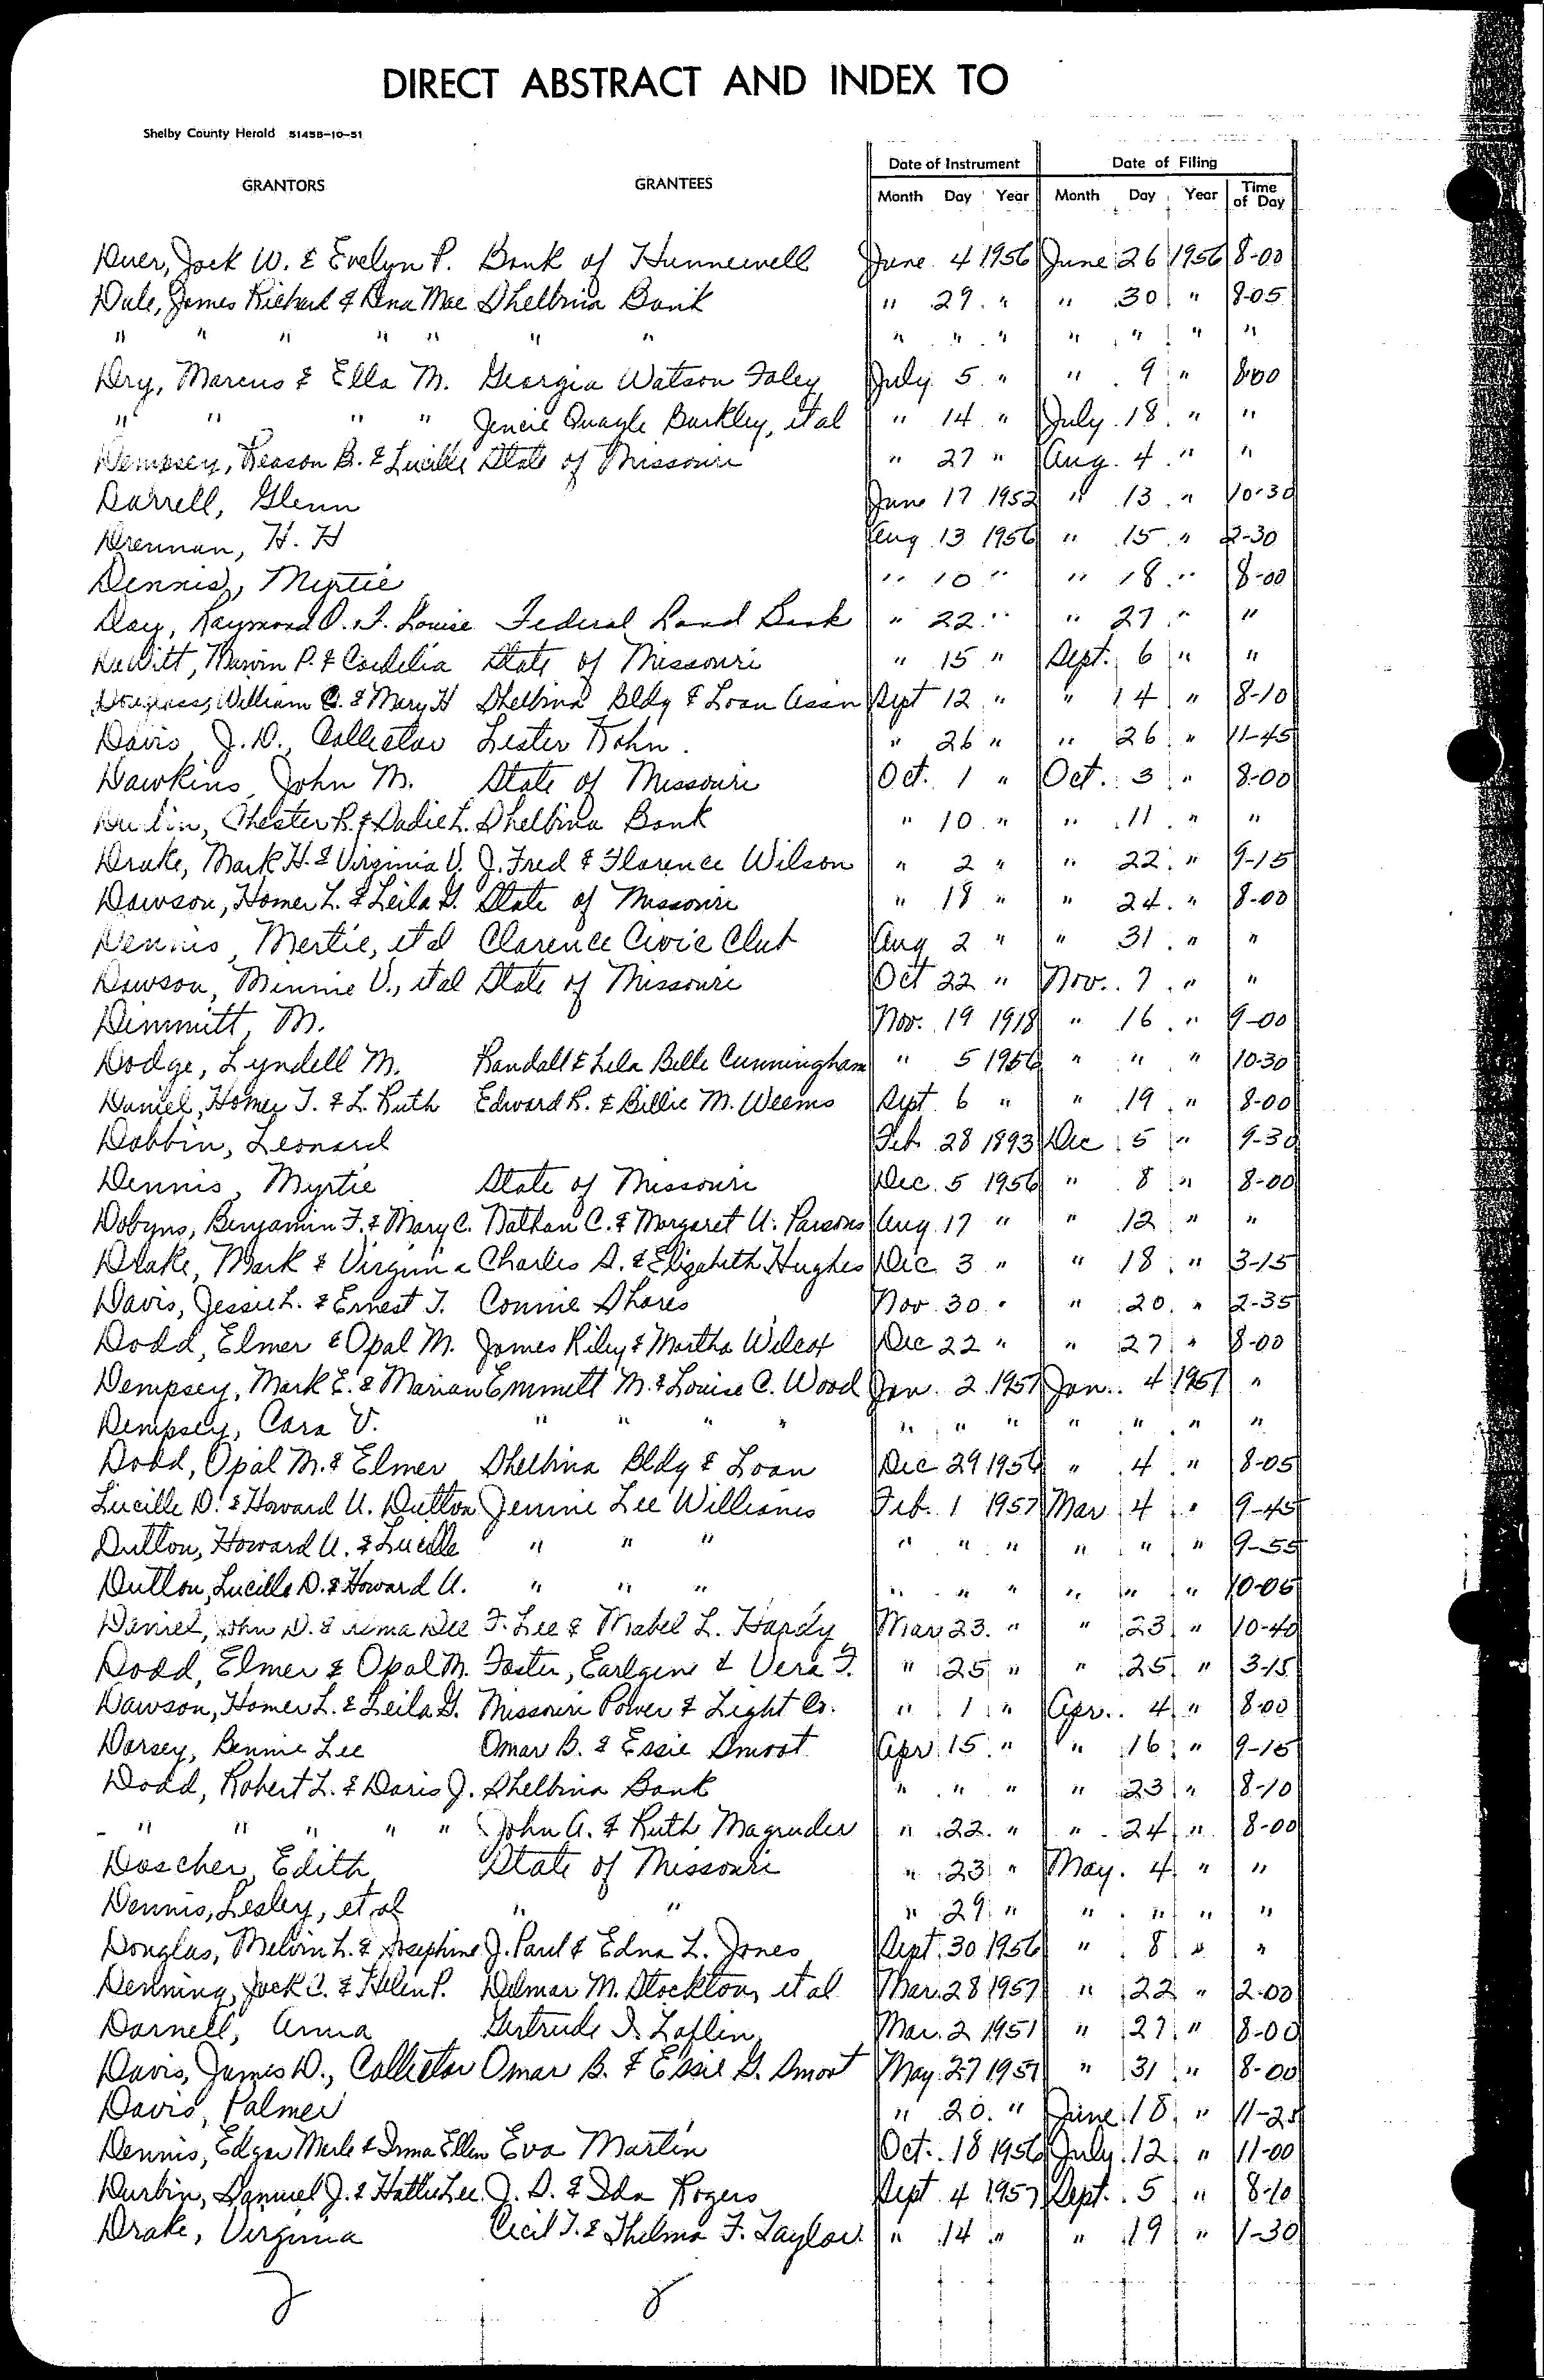 DIRECT ABSTRACT AND INDEX TO
Shelby County Herald 5145B-10-51
Date of Instrument Date of Filing
GRANTORS GRANTEES Month Day Year Month Day Year Time of Day
Duer, Jack W. & Evelyn P. Bank of Hunnewell June 4 1956 June 26 1956 8-00
Dale, James Richard & Rena Mae Shelbina Bank " 29 " " 30 " 8-05
" " " " " " " " " " " " " "
Dry, Marcus & Ella M. Georgia Watson Foley July 5 " " 9 " 8-00
" " " " Jencie Quagle Barkley, et al " 14 " July 18 " "
Dempsey, Reason B. & Lucille State of Missouri " 27 " Aug. 4 " "
Darrell, Glenn June 17 1952 " 13 " 10-30
Drennan, H. H Aug 13 1956 " 15 " 2-30
Dennis, Myrtie " 10 " " 18 " 8-00
Day, Raymond O. F. Louise Federal Land Bank " 22 " " 27 " "
DeWitt, Marvin P. & Cordelia State of Missouri " 15 " Sept. 6 " "
William C. & Mary H Shelbina Bldg & Loan Assn Sept 12 " " 14 " 8-10
Davis, J. D., Collector Lester Kohn. " 26 " " 26 " 11-45
Dawkins, John M. State of Missouri Oct. 1 " Oct. 3 " 8-00
Chester R. & Sadie L. Shelbina Bank " 10 " " 11 " "
Drake, Mark H. & Virginia V. J. Fred & Florence Wilson " 2 " " 22 " 9-15
Dawson, Homer L. & Leila G. State of Missouri " 18 " " 24 " 8-00
Dennis, Mertie, et al Clarence Civic Club Aug 2 " " 31 " "
Dawson, Minnie V., et al State of Missouri Oct 22 " Nov. 7 " "
Dimmitt, M. Nov. 19 1918 " 16 " 9-00
Dodge, Lyndell M. Randall & Lela Belle Cunningham " 5 1956 " " " 10-30
Daniel, Homer T. & L. Ruth Edward R. & Billie M. Weems Sept. 6 " " 19 " 8-00
Dobbin, Leonard Feb 28 1893 Dec 5 " 9-30
Dennis, Myrtie State of Missouri Dec. 5 1956 " 8 " 8-00
Dobyns, Benjamin F. & Mary C. Nathan C. & Margaret U. Parsons Aug. 17 " " 12 " "
Drake, Mark & Virginia Charles A. & Elizabeth Hughes Dec 3 " " 18 " 3-15
Davis, Jessie L. & Ernest T. Connie Shores Nov. 30 " " 20 " 2-35
Dodd, Elmer & Opal M. James Riley & Martha Wilcox Dec 22 " " 27 " 8-00
Dempsey, Mark E. & Marian Emmett M. & Louise C. Wood Jan. 2 1957 Jan. 4 1957 "
Dempsey, Cara V. " " " " " " " " " " "
Dodd, Opal M. & Elmer Shelbina Bldg & Loan Dec 29 1956 " 4 " 8-05
Lucille D. & Howard U. Dutton Jennie Lee Williams Feb. 1 1957 Mar 4 " 9-45
Dutton, Howard U. & Lucille " " " " " " " " " 9-55
Dutton, Lucille D. & Howard U. " " " " " " " " " 10-05
Daniel, John D. & F. Lee & Mabel L. Hardy Mar 23 " " 23 " 10-40
Dodd, Elmer & Opal M. Foster, Earlgene & Vera F. " 25 " " 25 " 3-15
Dawson, Homer L. & Leila G. Missouri Power & Light Co. " 1 " Apr. 4 " 8-00
Dorsey, Bennie Lee Omar B. & Essie Smoot Apr 15 " " 16 " 9-15
Dodd, Robert L. & Doris J. Shelbina Bank " " " " 23 " 8-10
" " " " " John A. & Ruth Magruder " 22 " " 24 " 8-00
Doscher, Edith State of Missouri " 23 " May. 4 " "
Dennis, Lesley, et al " " " 29 " " " " "
Douglas, Melvin L. & Josephine J. Paul & Edna L. Jones Sept. 30 1956 " 8 " "
Denning, Jack C. & Helen P. Delmar M. Stockton, et al Mar. 28 1957 " 22 " 2-00
Darnell, Anna Gertrude I. Laflin Mar. 2 1951 " 27 " 8-00
Davis, James D., Collector Omar B. & Essie G. Smoot May 27 1957 " 31 " 8-00
Davis, Palmer " 20 " June 18 " 11-25
Dennis, Edgar Merle & Irma Ellen Eva Martin Oct. 18 1956 July 12 " 11-00
Durbin, Samuel J. & Hattie Lee J. S. & Ida Rogers Sept 4 1957 Sept. 5 " 8-10
Drake, Virginia Cecil T. & Thelma F. Taylor " 14 " " 19 " 1-30